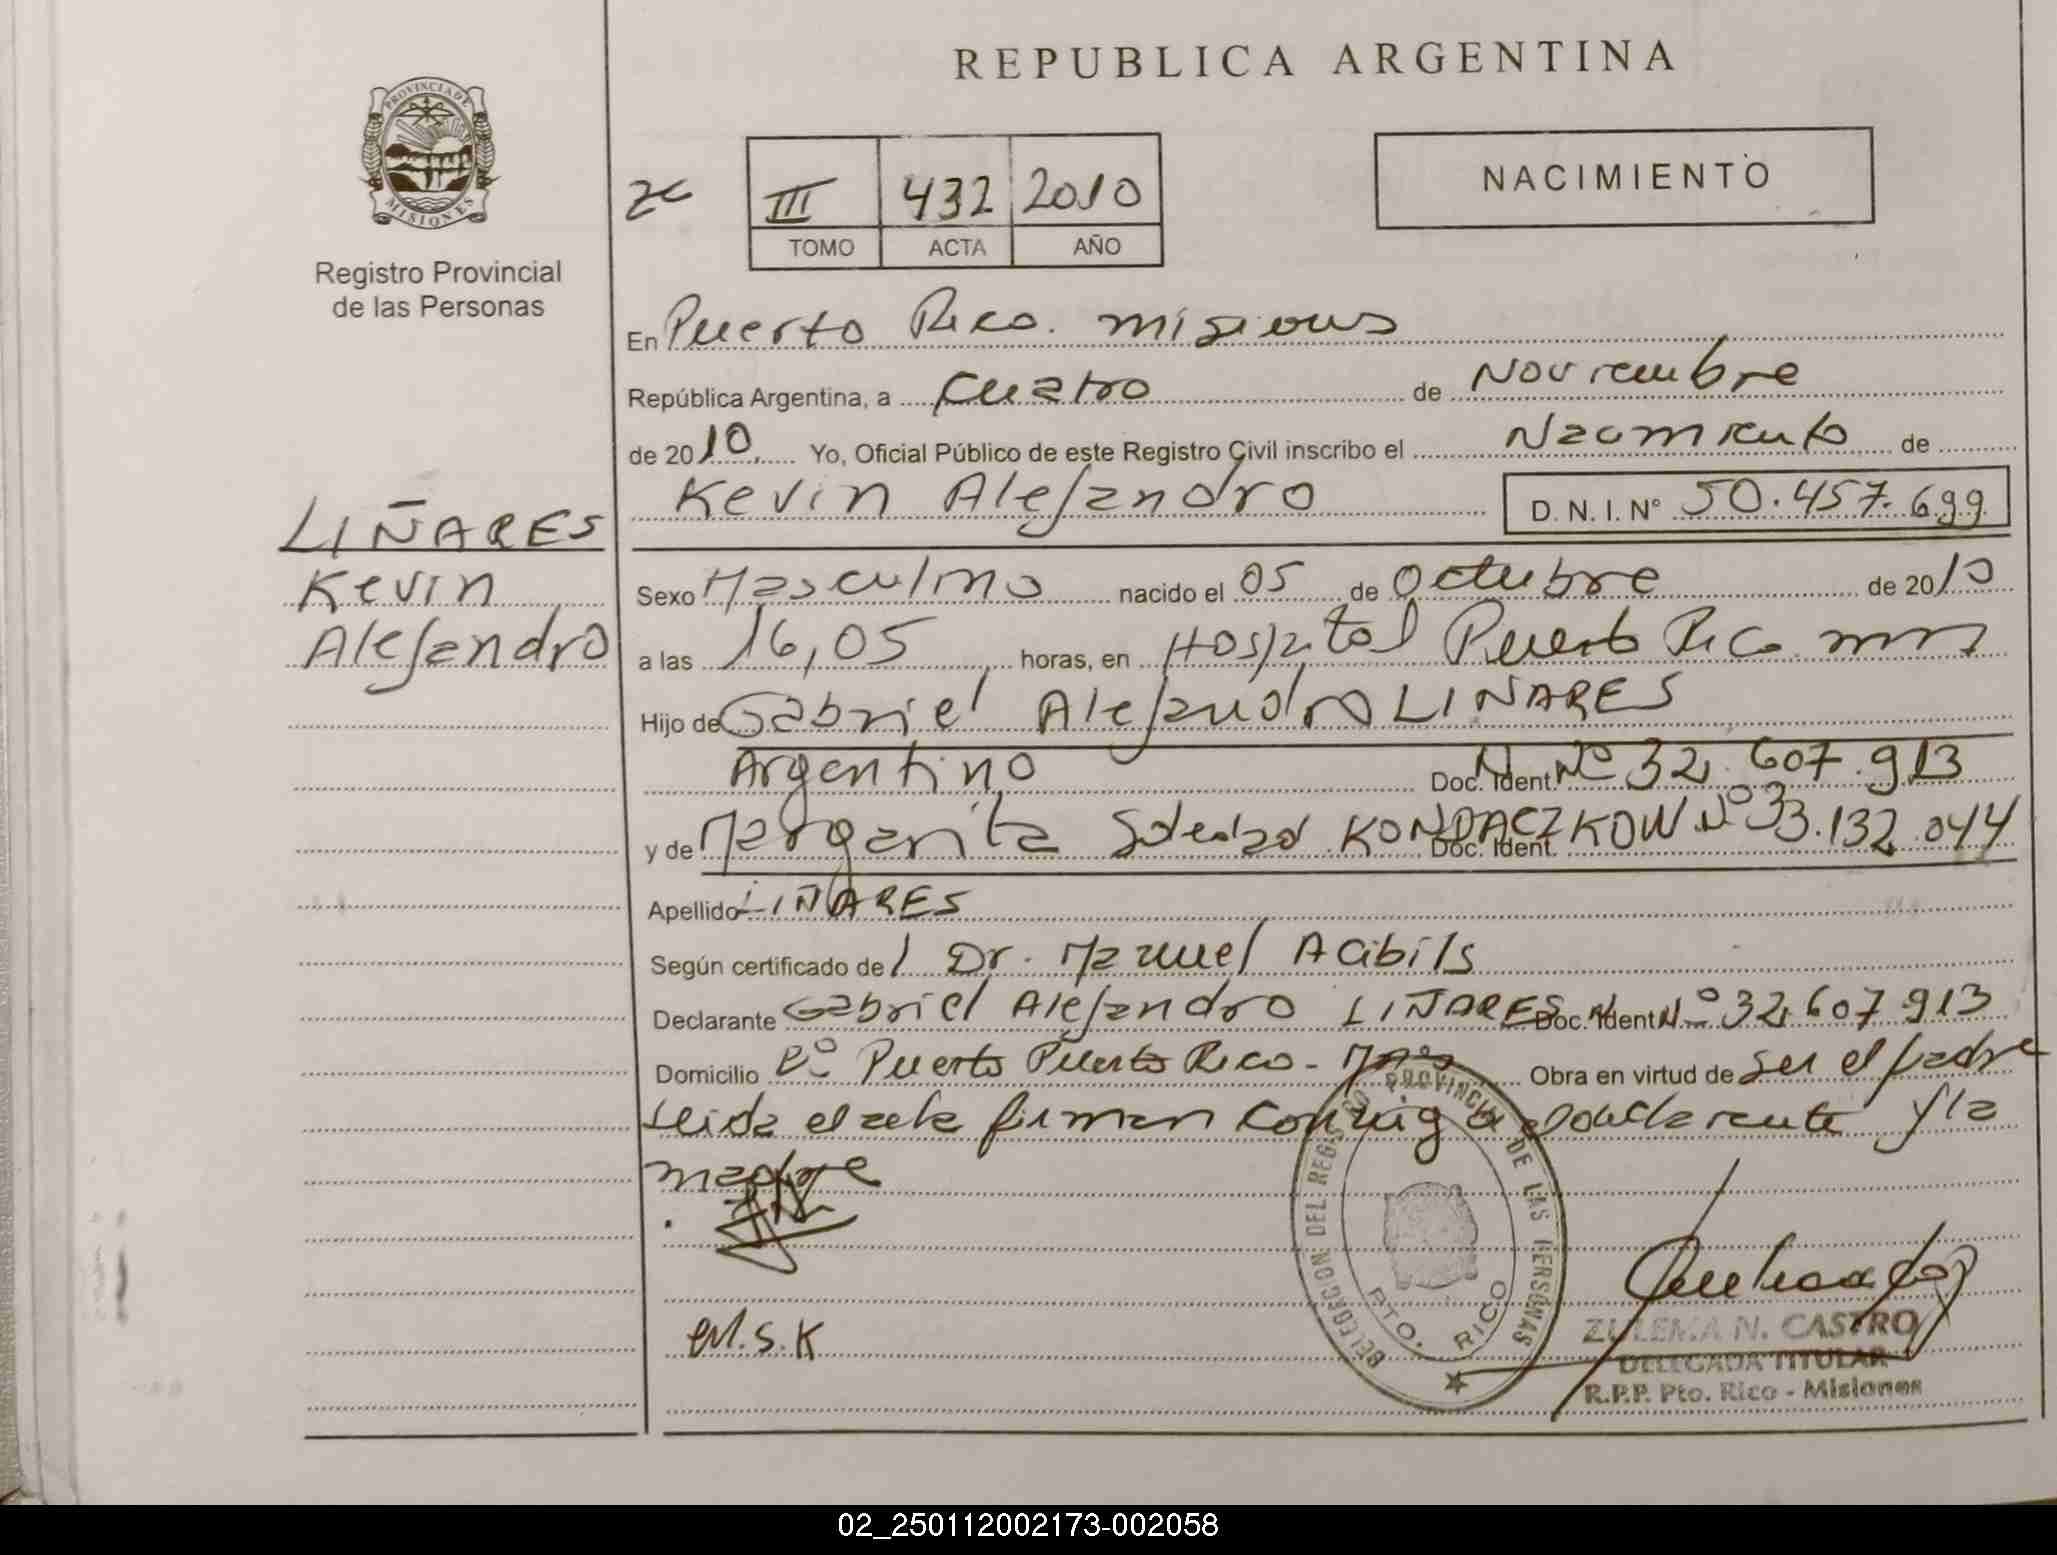 REPUBLICA ARGENTINA
PROVINCIA DE MISIONES
Registro Provincial
de las Personas
III 432 2010
TOMO ACTA AÑO
NACIMIENTO
En Puerto Rico. Misiones
República Argentina, a Cuatro de Noviembre
de 2010, Yo, Oficial Público de este Registro Civil inscribo el Nacimiento de
Kevin Alejandro D. N. I. Nº 50.457.699
LIÑARES
Kevin
Alejandro
Sexo Masculino nacido el 05 de Octubre de 2010
a las 16,05 horas, en Hospital Puerto Rico mns
Hijo de Gabriel Alejandro LIÑARES
Argentino Doc. Ident. Nº 32.607.913
y de Margarita Soledad KONDACZKOW Doc. Ident. Nº 33.132.044
Apellido LIÑARES
Según certificado del Dr. Manuel Acibils
Declarante Gabriel Alejandro LIÑARES Doc. Ident. Nº 32.607.913
Domicilio Puerto Puerto Rico - Obra en virtud de ser el padre
Leida el acta firman conmigo el declarante y la
madre
M.S.K
DELEGACION DEL REGISTRO PROVINCIAL DE LAS PERSONAS
PTO. RICO
ZULEMA N. CASTRO
DELEGADA TITULAR
R.P.P. Pto. Rico - Misiones
02_250112002173-002058